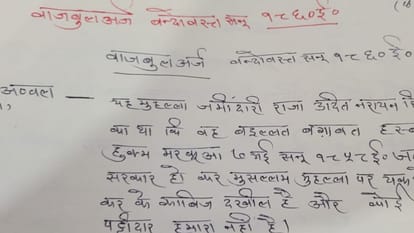 वाजबुल अर्ज बन्दोवस्त सन् १८६०ई०
वाजबुल अर्ज बन्दोवस्त सन् १८६०ई०
अव्वल — यह मुहल्ला जमींदारी राजा उदित नरायन
का था कि वह बइल्लत बग़ावत
हुक्म मरकूआ ७ मई सन् १८५८ई०
सरकार हो कर मुसल्लम मुहल्ला पर
कर के काबिज दखील है और कोई
पट्टीदार हमारा नहीं है।